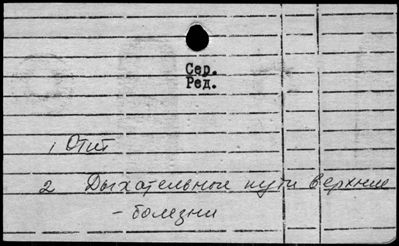 Сер.
Ред.
1 Отит
2 Дыхательные пути верхние
- болезни